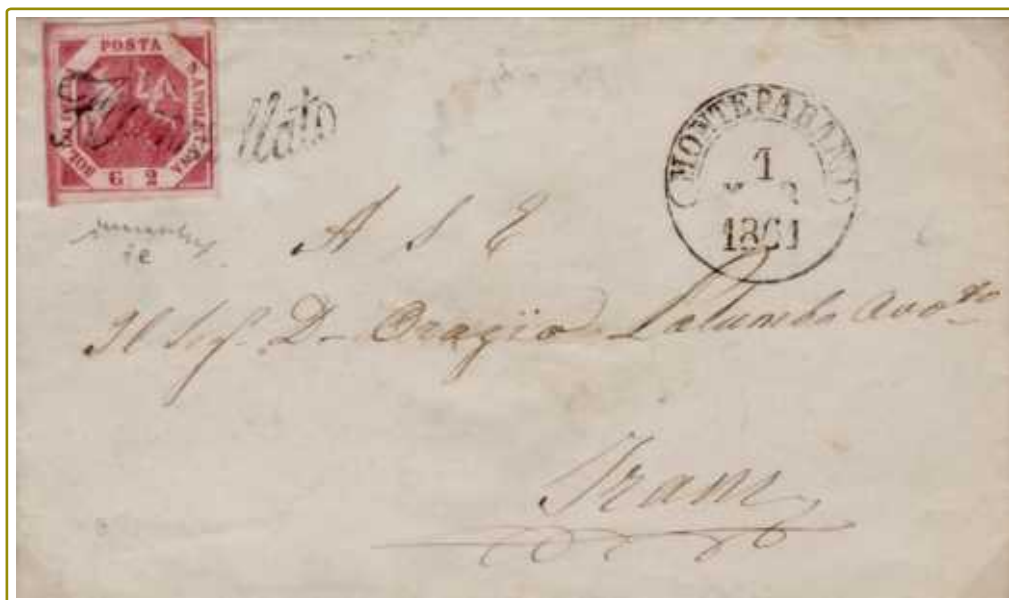 POSTA
NAPOLETANA
BOL
G 2
llato
MONTEPARANO
1
1861
A S E
Il Sig. D. Orazio Palumbo Avv.to
Trani